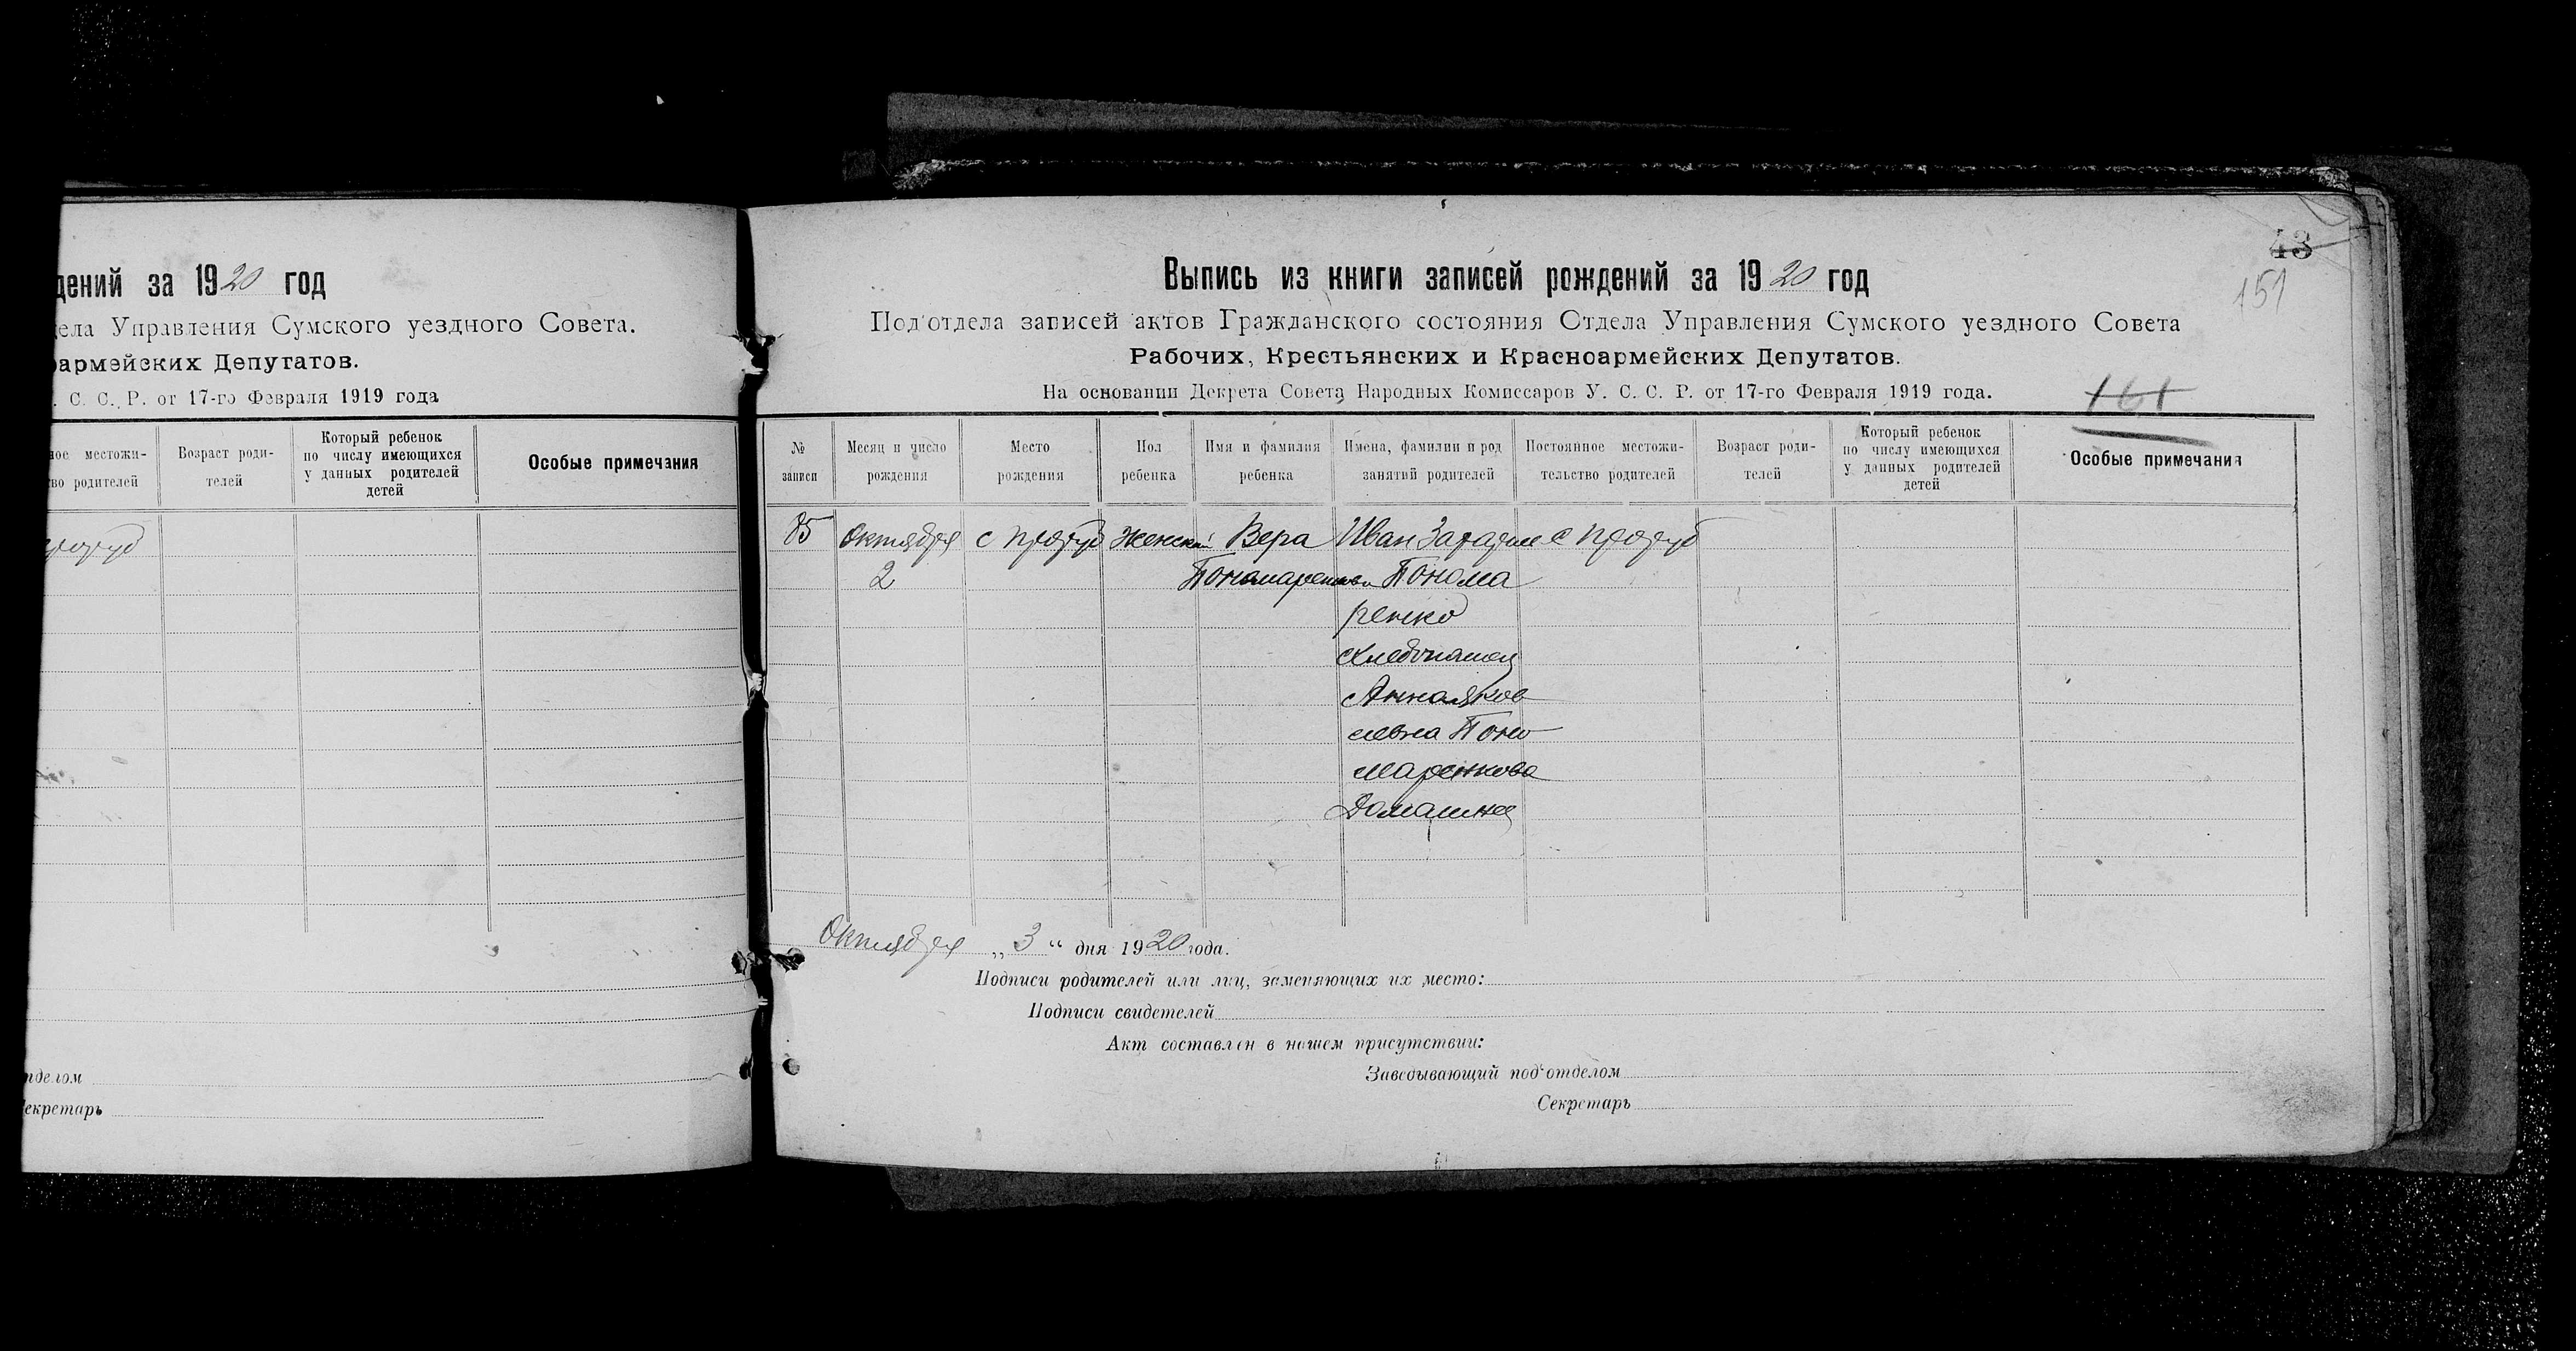 дений за 1920 год
ела Управления Сумского уездного Совета.
армейских Депутатов.
. С. С. Р. от 17-го Февраля 1919 года
ное местожи-
во родителей
Возраст роди-
телей
Который ребенок
по числу имеющихся
у данных родителей
детей
Особые примечания
отделом
Секретарь
43
151
161
Выпись из книги записей рождений за 1920 год
Под'отдела записей актов Гражданского состояния Отдела Управления Сумского уездного Совета
Рабочих, Крестьянских и Красноармейских Депутатов.
На основании Декрета Совета Народных Комиссаров У. С. С. Р. от 17-го Февраля 1919 года.
№
записи
Месяц и число
рождения
Место
рождения
Пол
ребенка
Имя и фамилия
ребенка
Имена, фамилии и род
занятий родителей
Постоянное местожи-
тельство родителей
Возраст роди-
телей
Который ребенок
по числу имеющихся
у данных родителей
детей
Особые примечания
85
Октября
2
с
Женский
Вера
Пономаренкова
Иван
Понома
ренко
Хлебопашец
Анна Яков
левна Поно
маренкова
Домашнее
с
Октября „3“ дня 1920 года.
Подписи родителей или лиц, заменяющих их место:
Подписи свидетелей
Акт составлен в нашем присутствии:
Заведывающий под'отделом
Секретарь